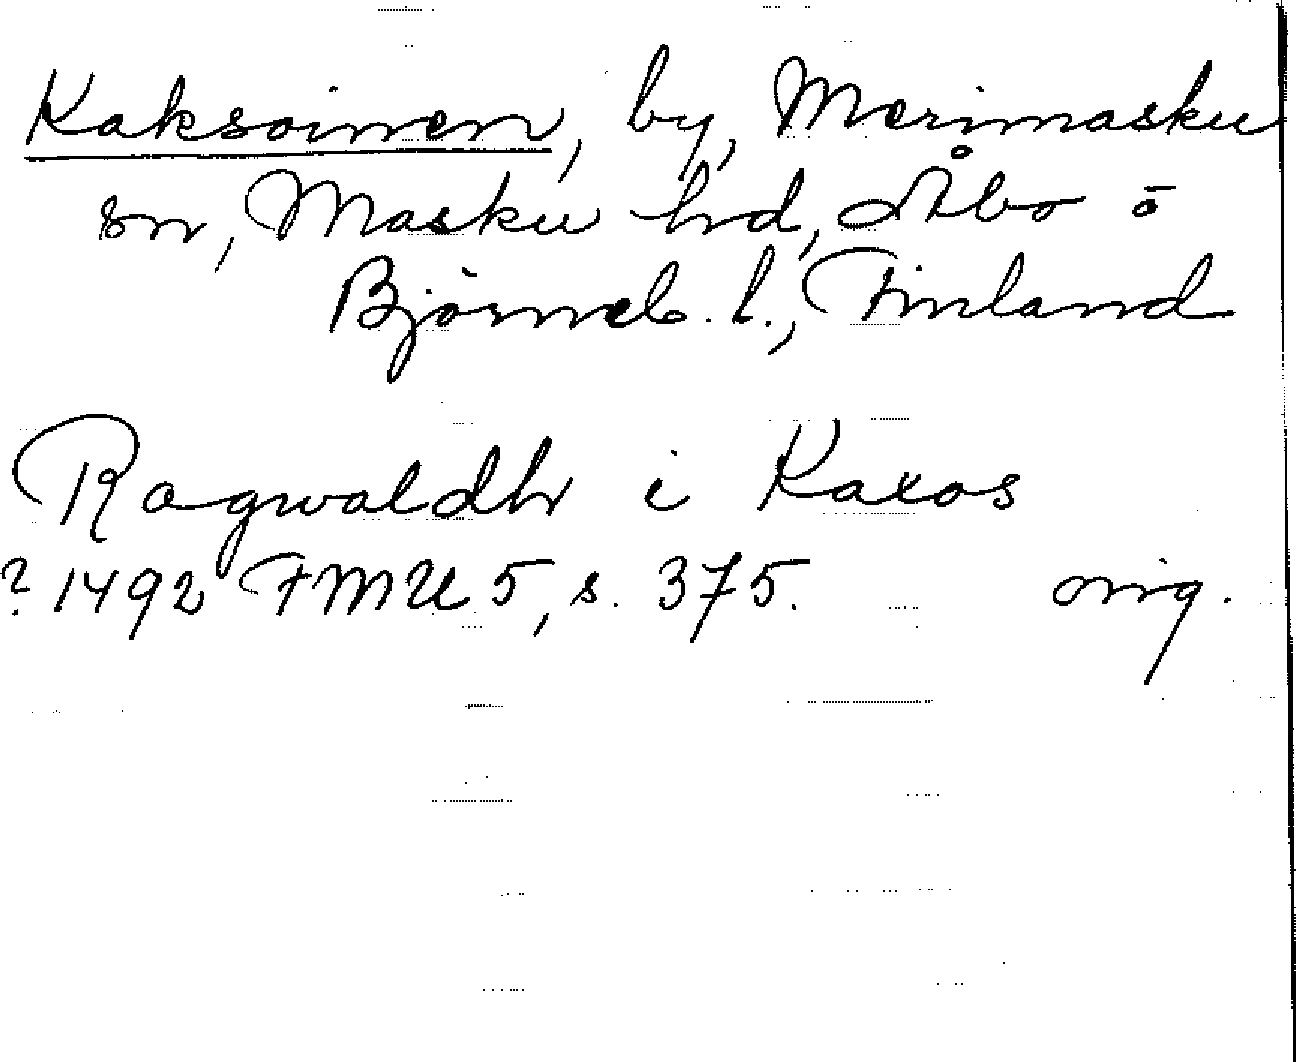 Kaksoinen, by, Merimasku
sn, Masku hd, Åbo o
Björneb. l., Finland
Ragwaldh i Kaxos
? 1492 FMU 5, s. 375. orig.